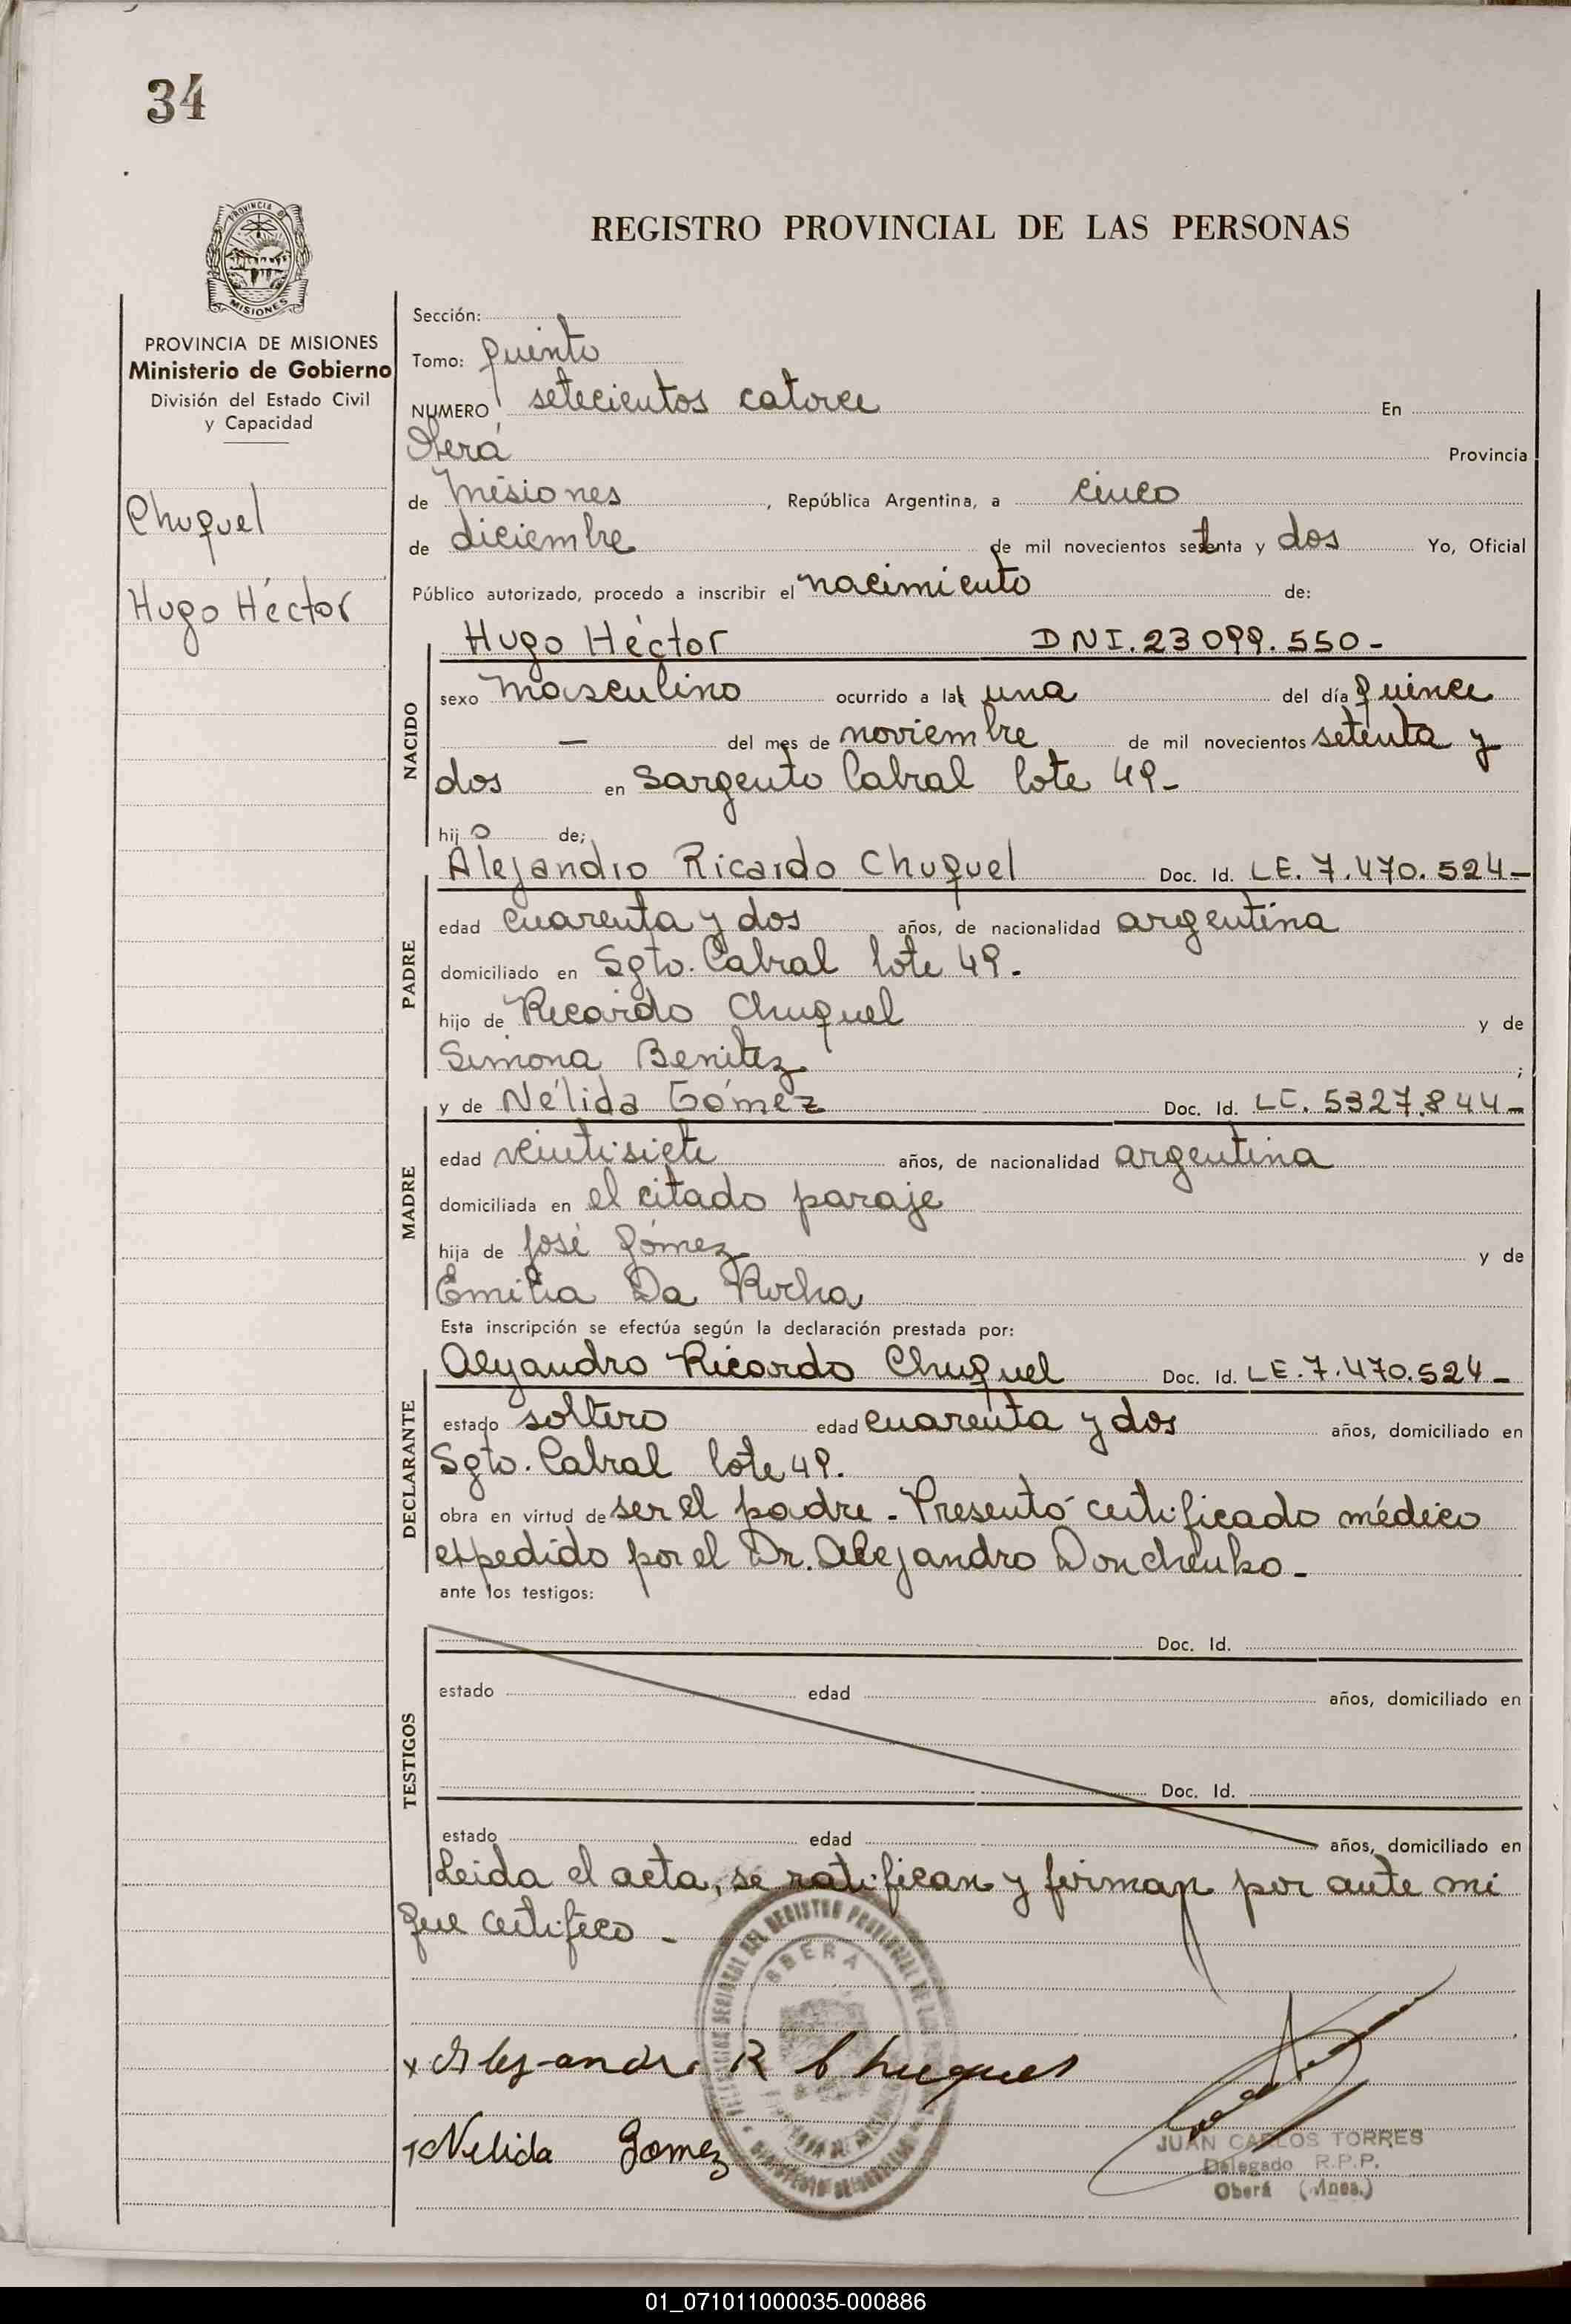 34
PROVINCIA DE
MISIONES
REGISTRO PROVINCIAL DE LAS PERSONAS
PROVINCIA DE MISIONES
Ministerio de Gobierno
División del Estado Civil
y Capacidad
Chuquel
Hugo Héctor
Sección:
Tomo: quinto
NUMERO setecientos catorce En
Oberá Provincia
de Misiones, República Argentina, a cinco
de diciembre de mil novecientos setenta y dos Yo, Oficial
Público autorizado, procedo a inscribir el nacimiento de:
NACIDO
Hugo Héctor DNI. 23099.550-
sexo masculino ocurrido a la una del día quince
— del mes de noviembre de mil novecientos setenta y
dos en Sargento Cabral lote 49-
hijo de;
PADRE
Alejandro Ricardo Chuquel Doc. Id. LE. 7.470.524-
edad cuarenta y dos años, de nacionalidad argentina
domiciliado en Sgto. Cabral lote 49.
hijo de Ricardo Chuquel y de
Simona Benitez ;
MADRE
y de Nélida Gómez Doc. Id. LC. 5327.844-
edad veintisiete años, de nacionalidad argentina
domiciliada en el citado paraje
hija de José Gómez y de
Emilia Da Rocha
Esta inscripción se efectúa según la declaración prestada por:
DECLARANTE
Alejandro Ricardo Chuquel Doc. Id. LE. 7.470.524-
estado soltero edad cuarenta y dos años, domiciliado en
Sgto. Cabral lote 49.
obra en virtud de ser el padre. Presentó certificado médico
expedido por el Dr. Alejandro Donchenko.-
ante los testigos:
TESTIGOS
Doc. Id.
estado edad años, domiciliado en
Doc. Id.
estado edad años, domiciliado en
Leida el acta, se ratifican y firman por ante mi
que certifico -
OBERA
x Alejandro R Chuquel
x Nelida Gomez
JUAN CARLOS TORRES
Delegado R.P.P.
Oberá (Mnes.)
01_071011000035-000886